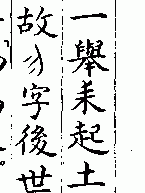 一舉耒起土
故字後世